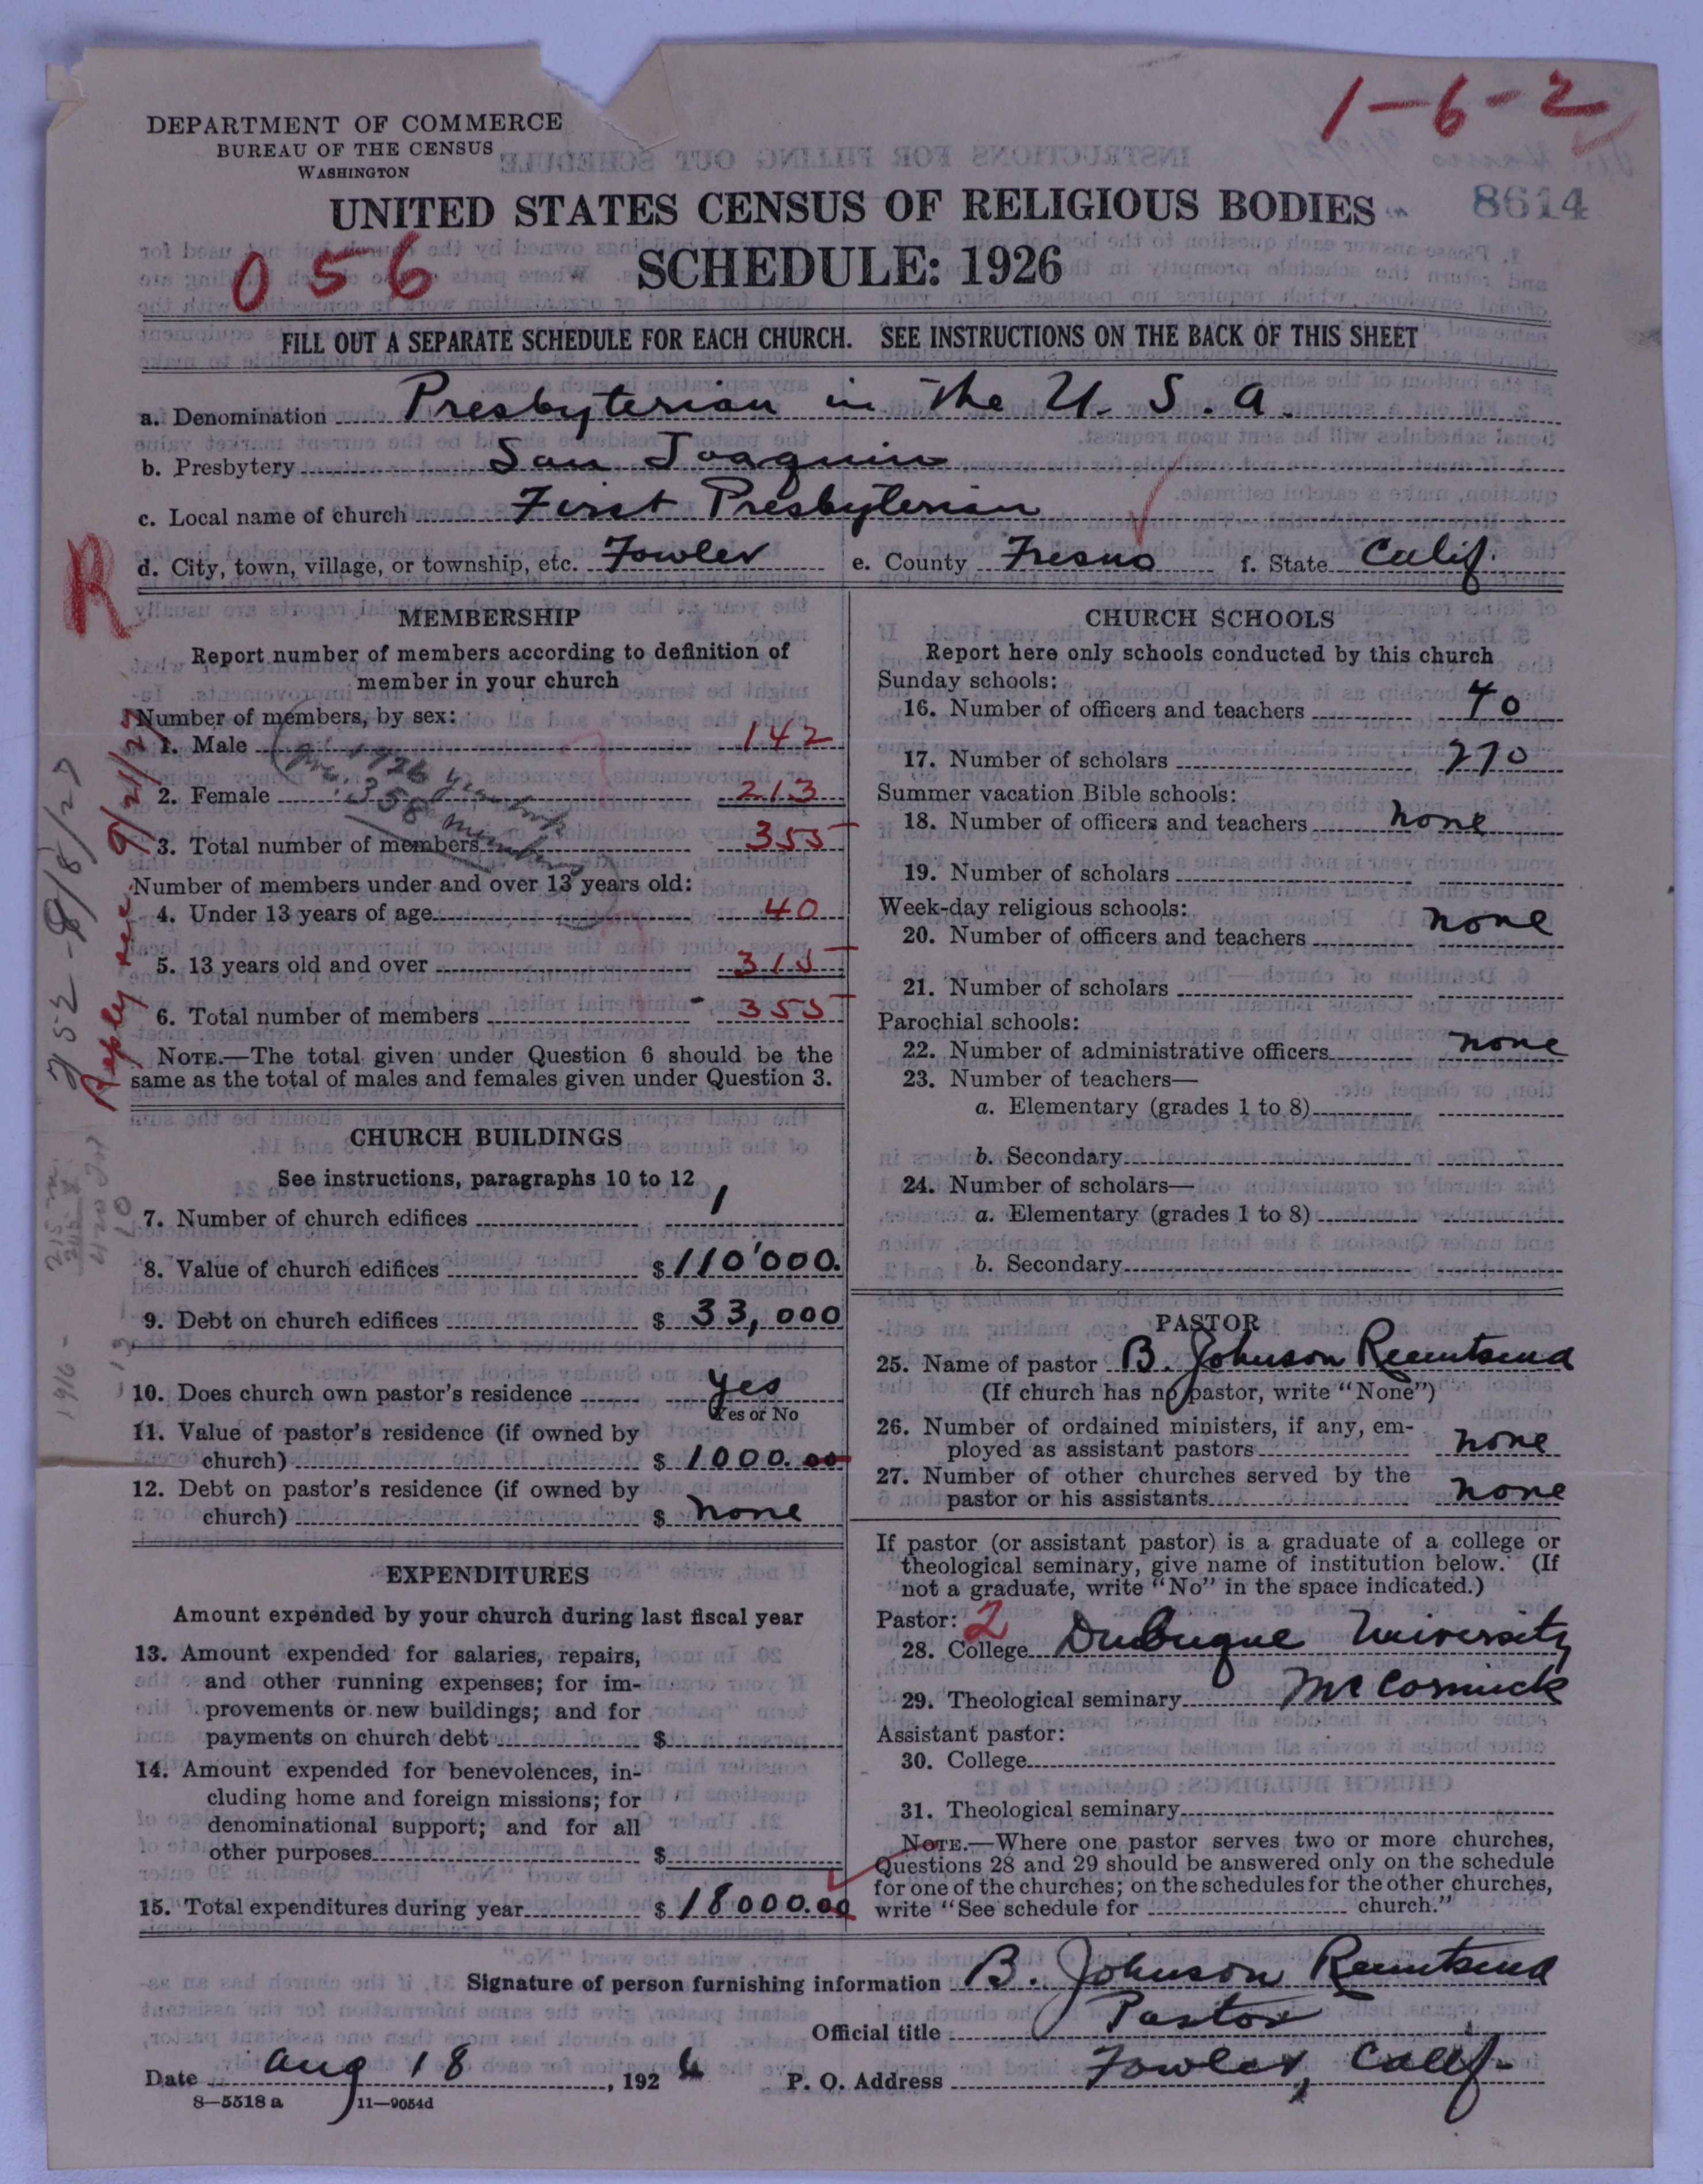 1-6-2
DEPARTMENT OF COMMERCE
BUREAU OF THE CENSUS
WASHINGTON
8614
UNITED STATES CENSUS OF RELIGIOUS BODIES
056
SCHEDULE: 1926
FILL OUT A SEPARATE SCHEDULE FOR EACH CHURCH. SEE INSTRUCTIONS ON THE BACK OF THIS SHEET
a. Denomination Presbyterian in the U. S. a
b. Presbytery San Joaquin
c. Local name of church First Presbyterian
d. City, town, village, or township, etc. Fowler e. County Fresno f. State Calif.
R
Reply rec 9/21/27
MEMBERSHIP
Report number of members according to definition of
member in your church
Number of members, by sex:
1. Male 142
2. Female 213
3. Total number of members 355
1926 year book
358 members
Number of members under and over 13 years old:
4. Under 13 years of age 40
5. 13 years old and over 315
6. Total number of members 355
NOTE.—The total given under Question 6 should be the
same as the total of males and females given under Question 3.
CHURCH BUILDINGS
See instructions, paragraphs 10 to 12
7. Number of church edifices 1
8. Value of church edifices $110'000.
9. Debt on church edifices $33,000
10. Does church own pastor's residence yes
Yes or No
11. Value of pastor's residence (if owned by
church) $1000.00
12. Debt on pastor's residence (if owned by
church) $none
1916-
EXPENDITURES
Amount expended by your church during last fiscal year
13. Amount expended for salaries, repairs,
and other running expenses; for im-
provements or new buildings; and for
payments on church debt $
14. Amount expended for benevolences, in-
cluding home and foreign missions; for
denominational support; and for all
other purposes $
15. Total expenditures during year $18000.00
CHURCH SCHOOLS
Report here only schools conducted by this church
Sunday schools:
16. Number of officers and teachers 40
17. Number of scholars 270
Summer vacation Bible schools:
18. Number of officers and teachers none
19. Number of scholars
Week-day religious schools:
20. Number of officers and teachers none
21. Number of scholars
Parochial schools:
22. Number of administrative officers none
23. Number of teachers—
a. Elementary (grades 1 to 8)
b. Secondary
24. Number of scholars—
a. Elementary (grades 1 to 8)
b. Secondary
PASTOR
25. Name of pastor B. Johnson Reemtsma
(If church has no pastor, write "None")
26. Number of ordained ministers, if any, em-
ployed as assistant pastors none
27. Number of other churches served by the
pastor or his assistants none
If pastor (or assistant pastor) is a graduate of a college or
theological seminary, give name of institution below. (If
not a graduate, write "No" in the space indicated.)
Pastor: 2
28. College Dubuque University
29. Theological seminary McCormick
Assistant pastor:
30. College
31. Theological seminary
NOTE.—Where one pastor serves two or more churches,
Questions 28 and 29 should be answered only on the schedule
for one of the churches; on the schedules for the other churches,
write "See schedule for church."
Signature of person furnishing information B. Johnson Reemtsma
Official title Pastor
Date Aug 18, 1926 P. O. Address Fowler, Calif-
8—5518 a 11—9054d